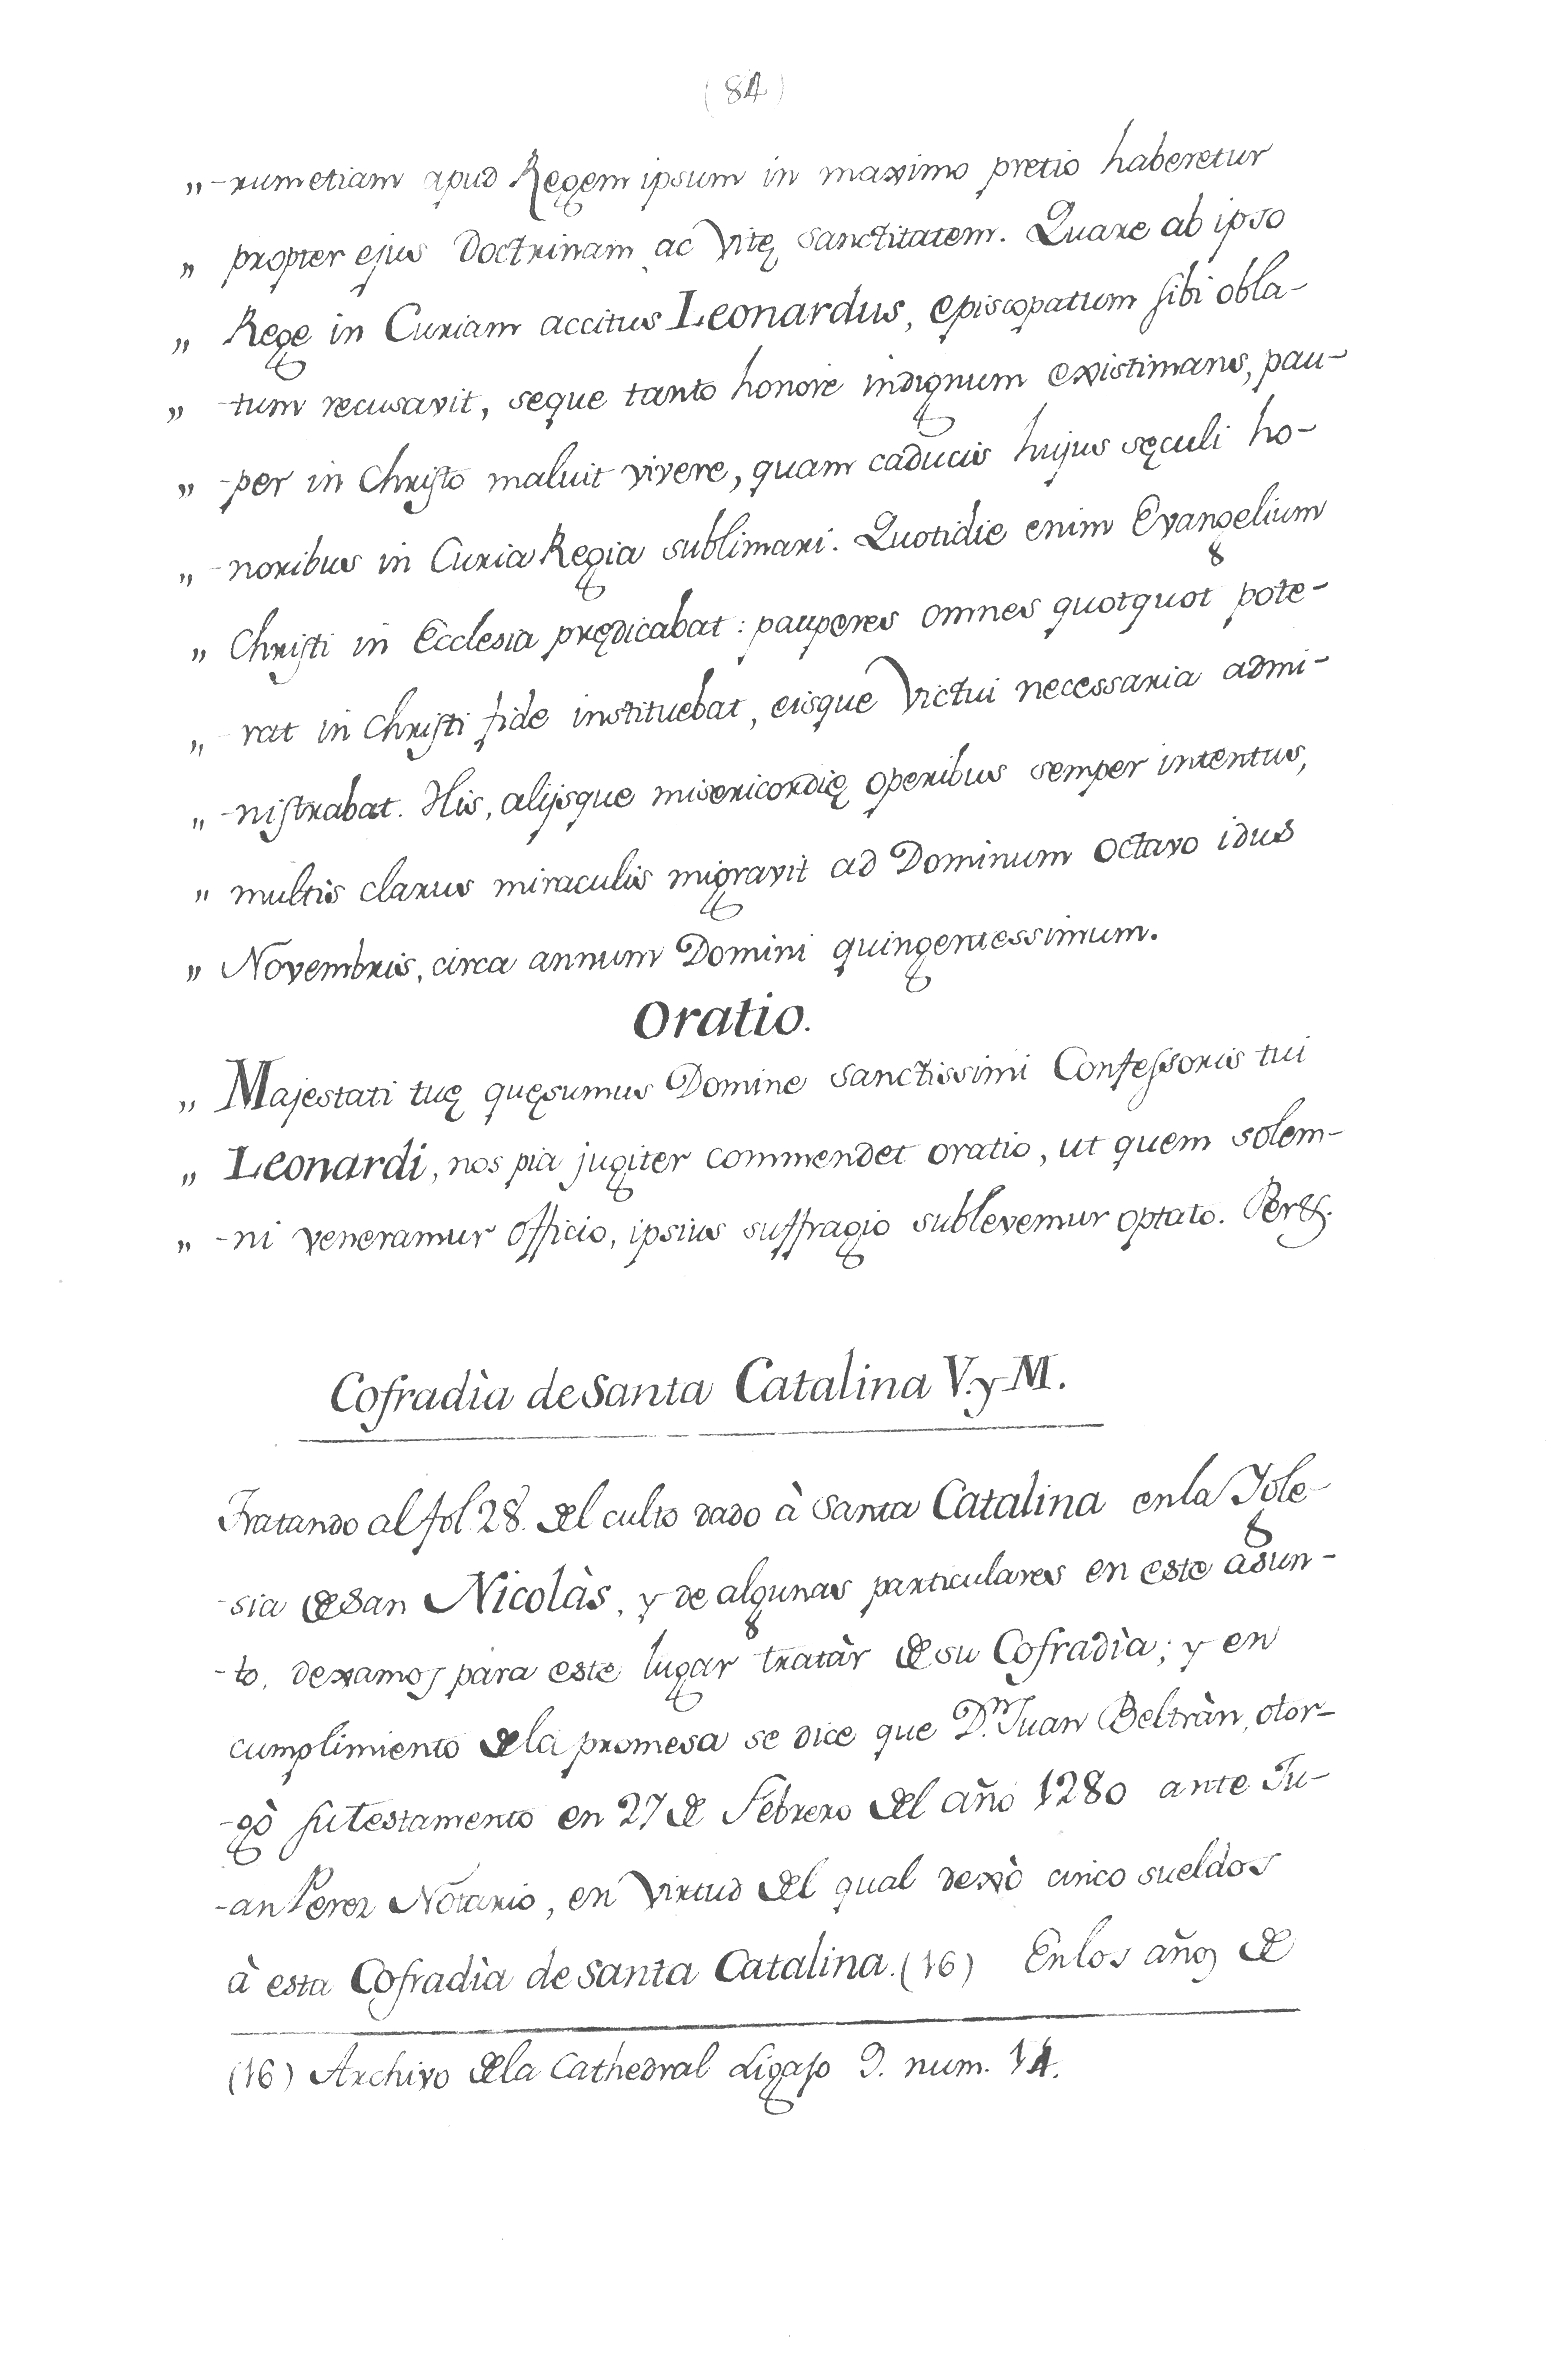 (84)
„ -rum etiam apud Regem ipsum in maximo pretio haberetur
„ propter ejus Doctrinam ac Vitę sanctitatem. Quare ab ipso
„ Rege in Curiam accitus Leonardus, episcopatum sibi obla-
„ tum recusavit, seque tanto honore indignum existimans, pau-
„ -per in Christo maluit vivere, quam caducis hujus sęculi ho-
„ -noribus in Curia Regia sublimari. Quotidie enim Evangelium
„ Christi in Ecclesia prędicabat: pauperes omnes quotquot pote-
„ -rat in Christi fide instituebat, eisque Victui necessaria admi-
„ -nistrabat. His, alijsque misericordię operibus semper intentus,
„ multis clarus miraculis migravit ad Dominum octavo idus
„ Novembris, circa annum Domini quingentessimum.
Oratio.
„ Majestati tuę quęsumus Domine sanctissimi Confessoris tui
„ Leonardi, nos pia jugiter commendet oratio, ut quem solem-
„ -ni veneramur officio, ipsius suffragio sublevemur optato. Per &.
Cofradìa de Santa Catalina V. y M.
Tratando al fol 28. del culto dado à Santa Catalina en la Igle-
-sia de San Nicolàs, y de algunas particulares en este asun-
-to, dexamos para este lugar tratàr de su Cofradìa; y en
cumplimiento de la promesa se dice que D.n Juan Beltràn, otor-
-gò su testamento en 27 de Febrero del año 1280 ante Ju-
-an Perez Notario, en Virtud del qual dexò cinco sueldos
à esta Cofradìa de santa Catalina. (16) En los años de
(16) Archivo de la Cathedral Ligaso 9. num. 14.